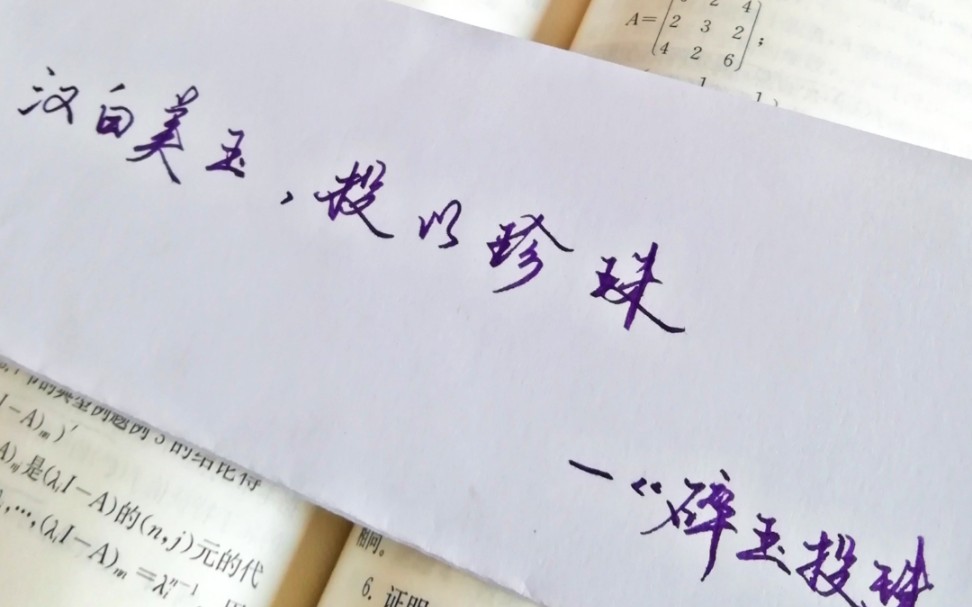 2 4
A= 2 3 2 ;
4 2 6
汉白美玉，投以珍珠
—《碎玉投珠
的典型例题例3的结论得
I-A)ₙₙ)′
A)ₙⱼ是(λᵢI-A)的(n,j)元的代
,…,(λᵢI-A)ₙₙ=λᵢⁿ⁻¹
相同。
6. 证明